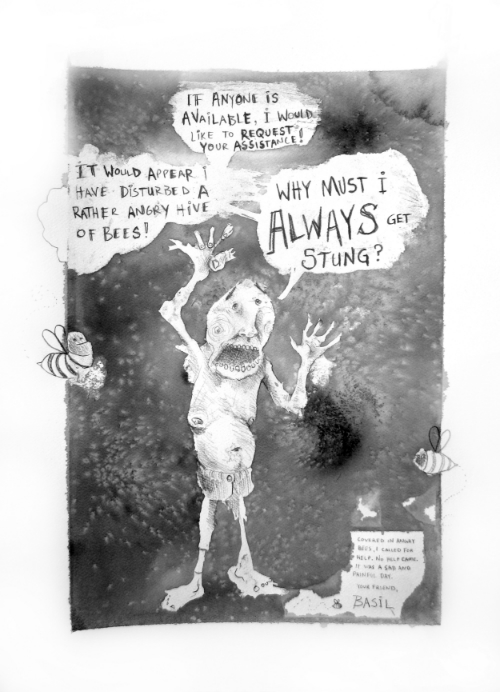 IF ANYONE IS
AVAILABLE, I WOULD
LIKE TO REQUEST
YOUR ASSISTANCE!
IT WOULD APPEAR I
HAVE DISTURBED A
RATHER ANGRY HIVE
OF BEES!
WHY MUST I
ALWAYS GET
STUNG?
COVERED IN ANGRY
BEES, I CALLED FOR
HELP. NO HELP CAME.
IT WAS A SAD AND
PAINFUL DAY.
YOUR FRIEND,
BASIL